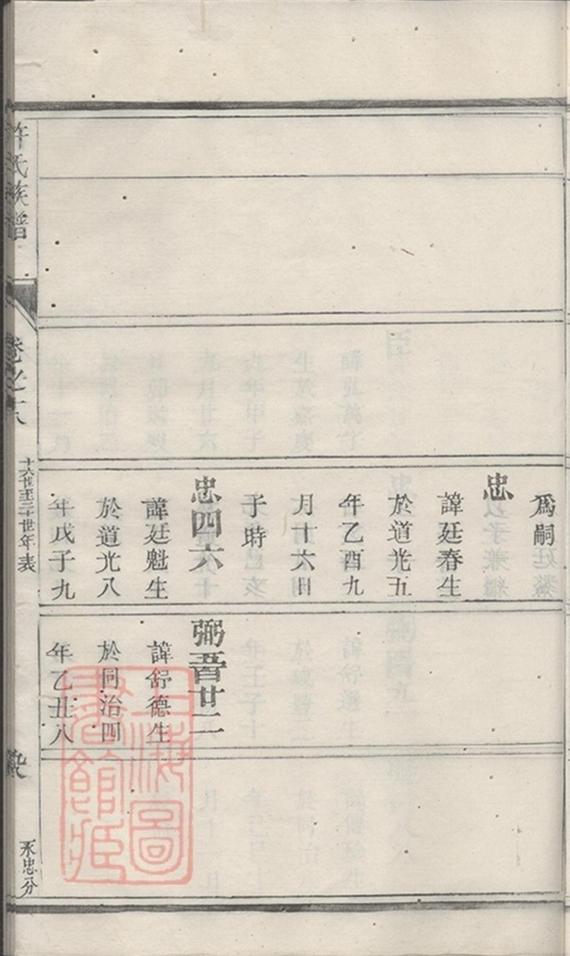 爲嗣
忠
諱廷春生
於道光五
年乙酉九
月十六日
子時
忠四六
諱廷魁生
於道光八
年戊子九
弼晉廿二
諱舒德生
於同治四
年乙丑八
許氏族譜
卷之
十六世至三十世年表
忠分
上海圖
書館藏